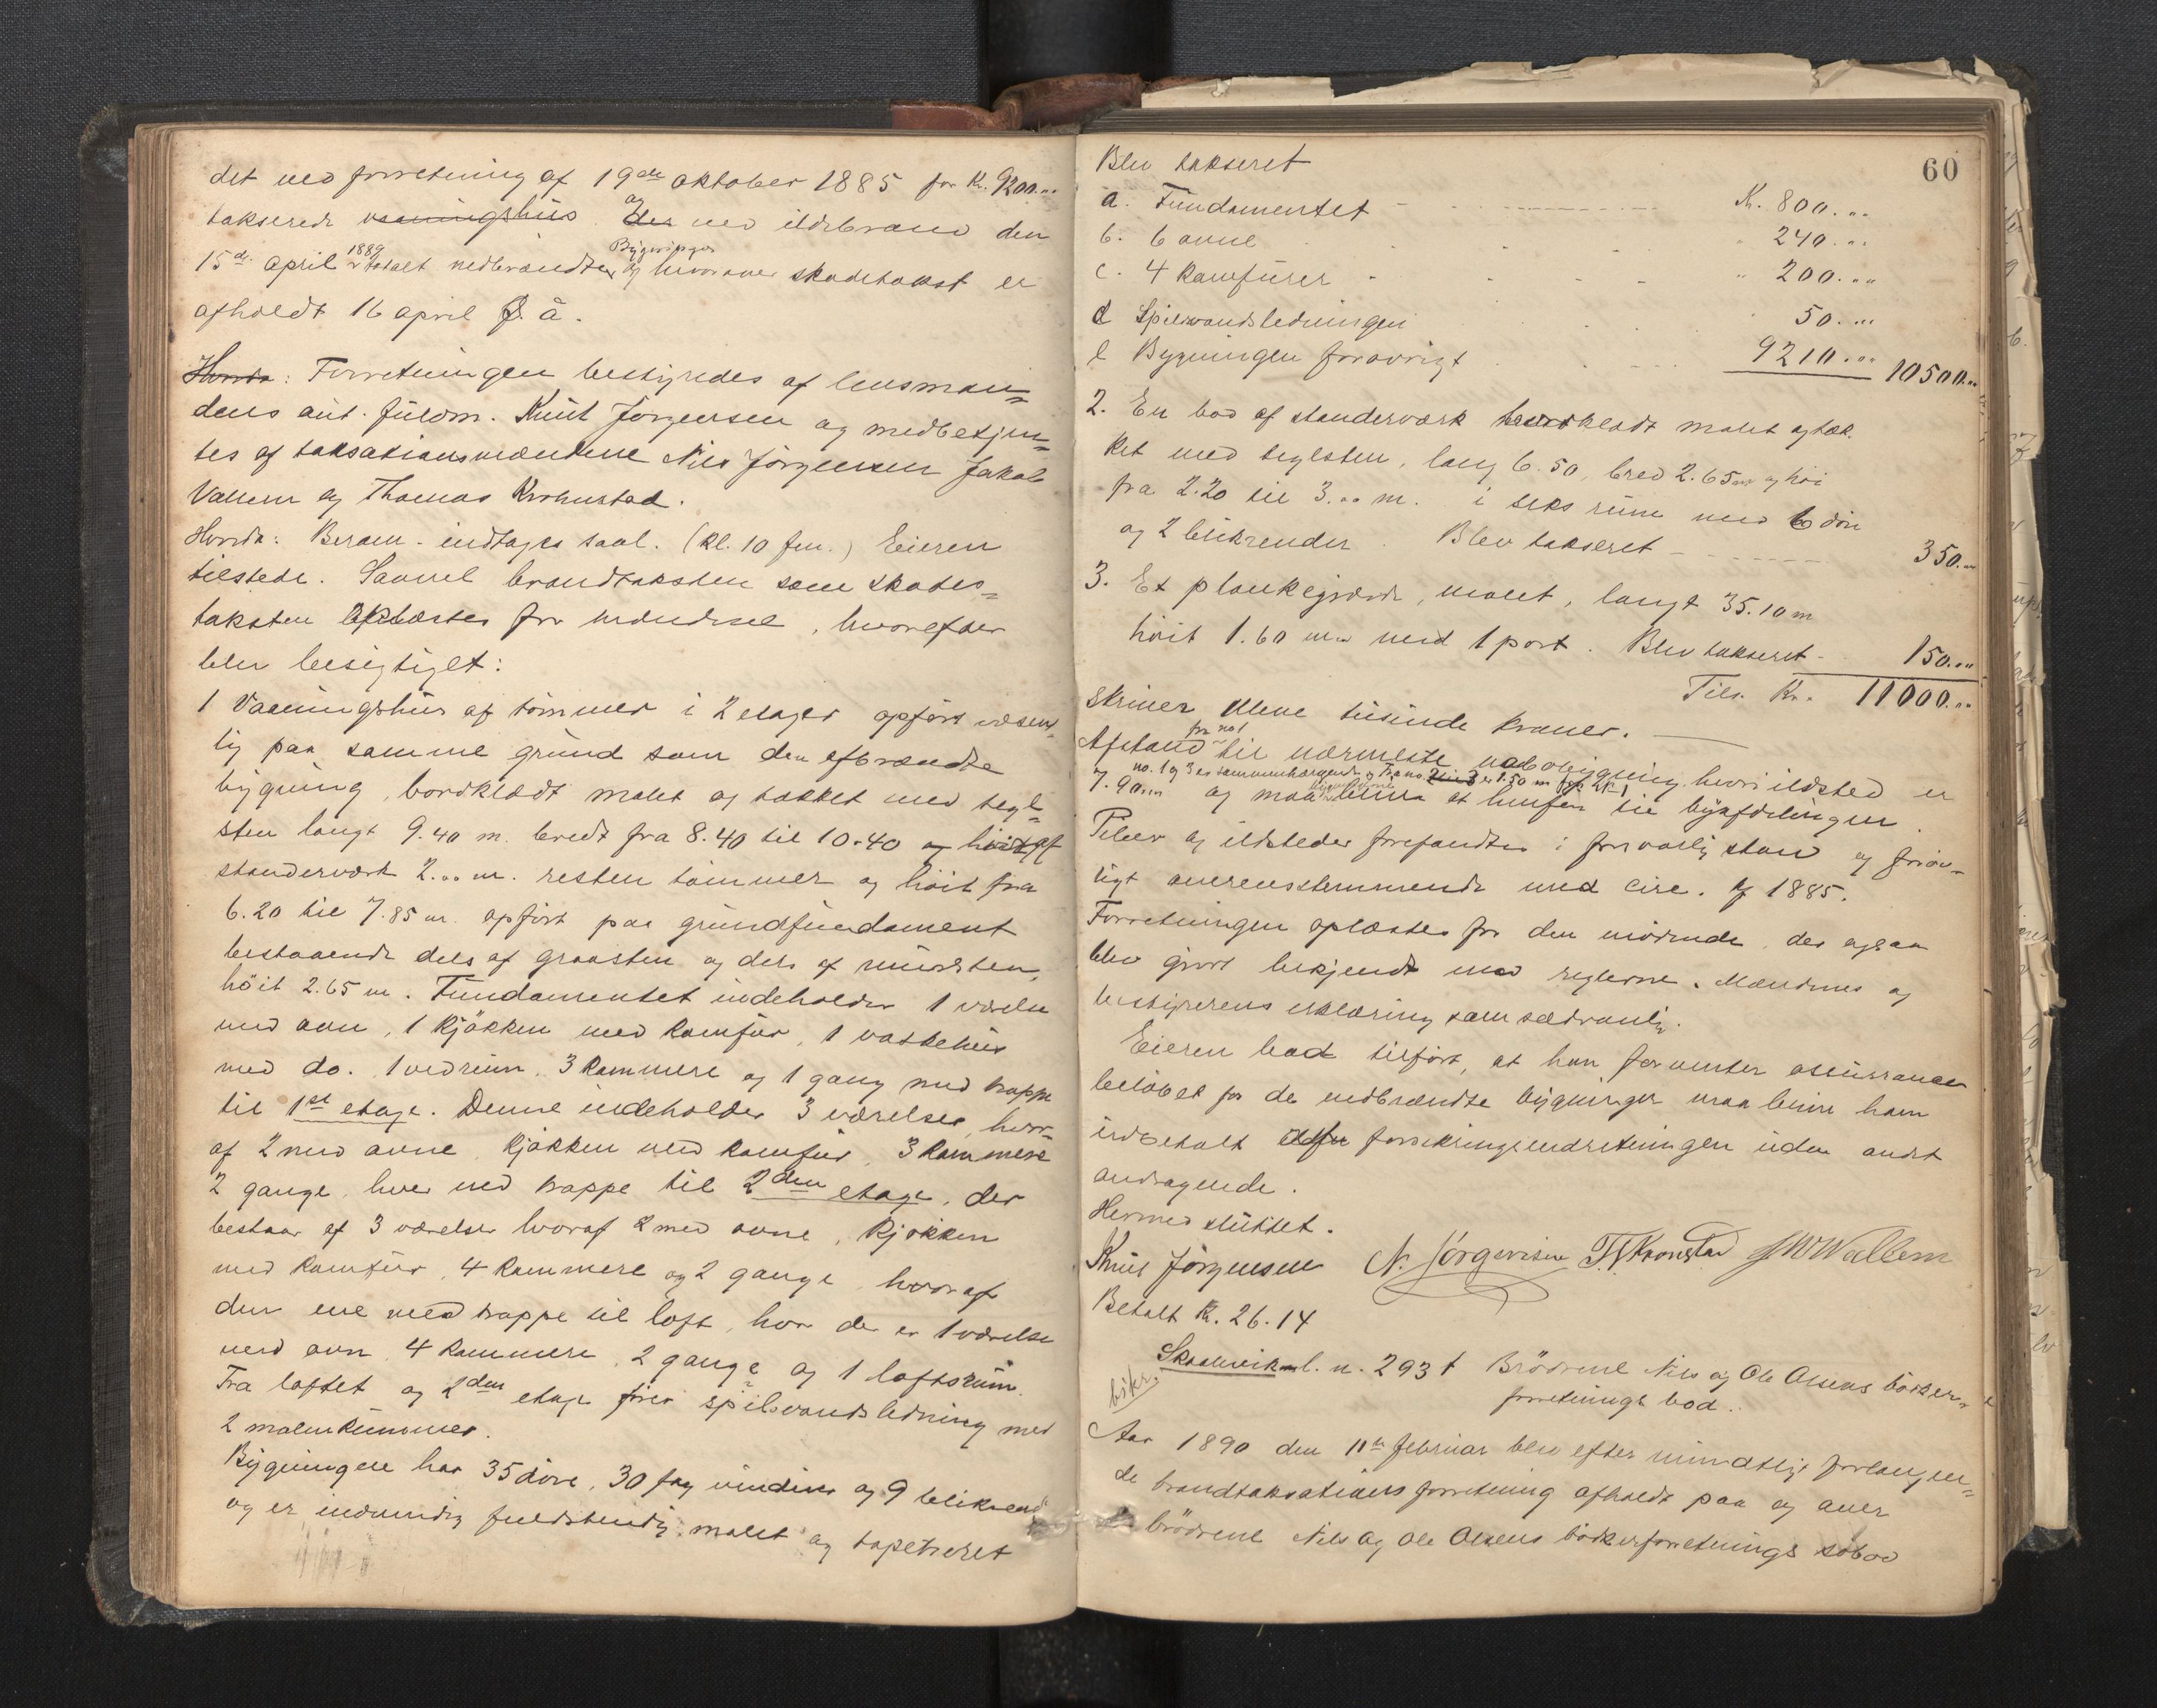 det ved forretning af 19de oktober 1885 for Kr. 9200...
takserede vaaningshus og der ved ildebrand den
15de april 1889 totalt nedbrændte Bygninger og hvorover skadetakst er
afholdt 16 april s. å.
Hvorda: Forretningen bestyredes af lensman=
dens aut. fuldm. Knut Jørgensen og medbetjen=
tes af taksationsmændene Nils Jörgensen Jakob
Vallem og Thomas Kronstad.
Hvorda: Beram. indtages saal. (kl. 10 fm.) Eieren
tilstede. Saavel brandtaksten som skades=
taksten oplæstes for mændene, hvorefter
blev besigtiget:
1 Vaaningshus af tømmer i 2 etager opført væsent=
lig paa samme grund som den afbrændte
bygning, bordklædt malet og tækket med tegl=
sten langt 9.40 m. bredt fra 8.40 til 10.40 og høit af
standerværk 2... m. resten tømmer og høit fra
6.20 til 7.85 m. opført paa grundfundament
bestaaende dels af graasten og dels af mursten,
höit 2.65 m. Fundamentet indeholder 1 værelse
med ovn, 1 kjøkken med komfur, 1 vaskehus
med do. 1 vedrum, 3 kammere og 1 gang med trappe
til 1ste etage. Denne indeholder 3 værelser, hvor=
af 2 med ovne, kjøkken med komfur, 3 kammere
2 gange, hver med trappe til 2den etage, der
bestaar af 3 værelser hvoraf 2 med ovne, kjøkken
med komfur, 4 kammere og 2 gange, hvoraf
den ene med trappe til loft, hvor der er 1 værelse
med ovn, 4 kammere, 2 gange og 1 loftsrum.
Fra loftet og 2den etage fører spilvandsledning med
2 malm kummer.
Bygningen har 35 døre, 30 fag vinduer og 9 blikrender
og er indvendig fuldstændig malet og tapetseret
60
Blev takseret
a. Fundamentet Kr. 800...
b. 6 ovne " 240...
c. 4 komfurer " 200...
d Spilvandsledningen 50...
e Bygningen forøvrigt 9210... 10500...
2. En bod af standerværk bordklædt malet og tæk
ket med teglsten, lang 6.50, bred 2.65 m og höi
fra 2.20 til 3... m. i seks rum med 6 döre
og 2 blikrender. Blev takseret 350...
3. Et plankegjærde, malet, langt 35.10 m
höit 1.60 m. med 1 port. Blev takseret 150...
Tils. Kr. 11000...
skriver elleve tusinde kroner.
Afstand fra no 1 til nærmeste nabobygning, hvori ildsted er
no. 1 og 3 er sammenhængende og Fra no. 2 til 3 er 1.50 m
7.90 m. og maa bygningerne blive at henføre til byafdelingen.
Piber og ildsteder forefandtes i forsvarlig stand og forøv=
rigt overensstemmende med circ. af 1885.
Forretningen oplæstes for den mødende, der ogsaa
blev gjort bekjendt med reglerne. Mændenes og
bestyrerens erklæring som sædvanlig.
Eieren bad tilført, at han forventer assurance
beløbet for de nedbrændte bygninger maa blive ham
udbetalt forsikringsindretningen uden andet
andragende.
Hermed sluttet.
Knut Jörgensen N. Jörgensen T. Kronstad J W Wallem
Betalt Kr. 26.14
bökr.
Skaalevik l. n. 293 f Brödrene Nils og Ole Olsens bödker
forretnings bod.
Aar 1890 den 11te februar blev efter mundtlig forlangen=
de brandtaksations forretning afholdt paa og over
brödrene Nils og Ole Olsens bödkerforretnings søbod